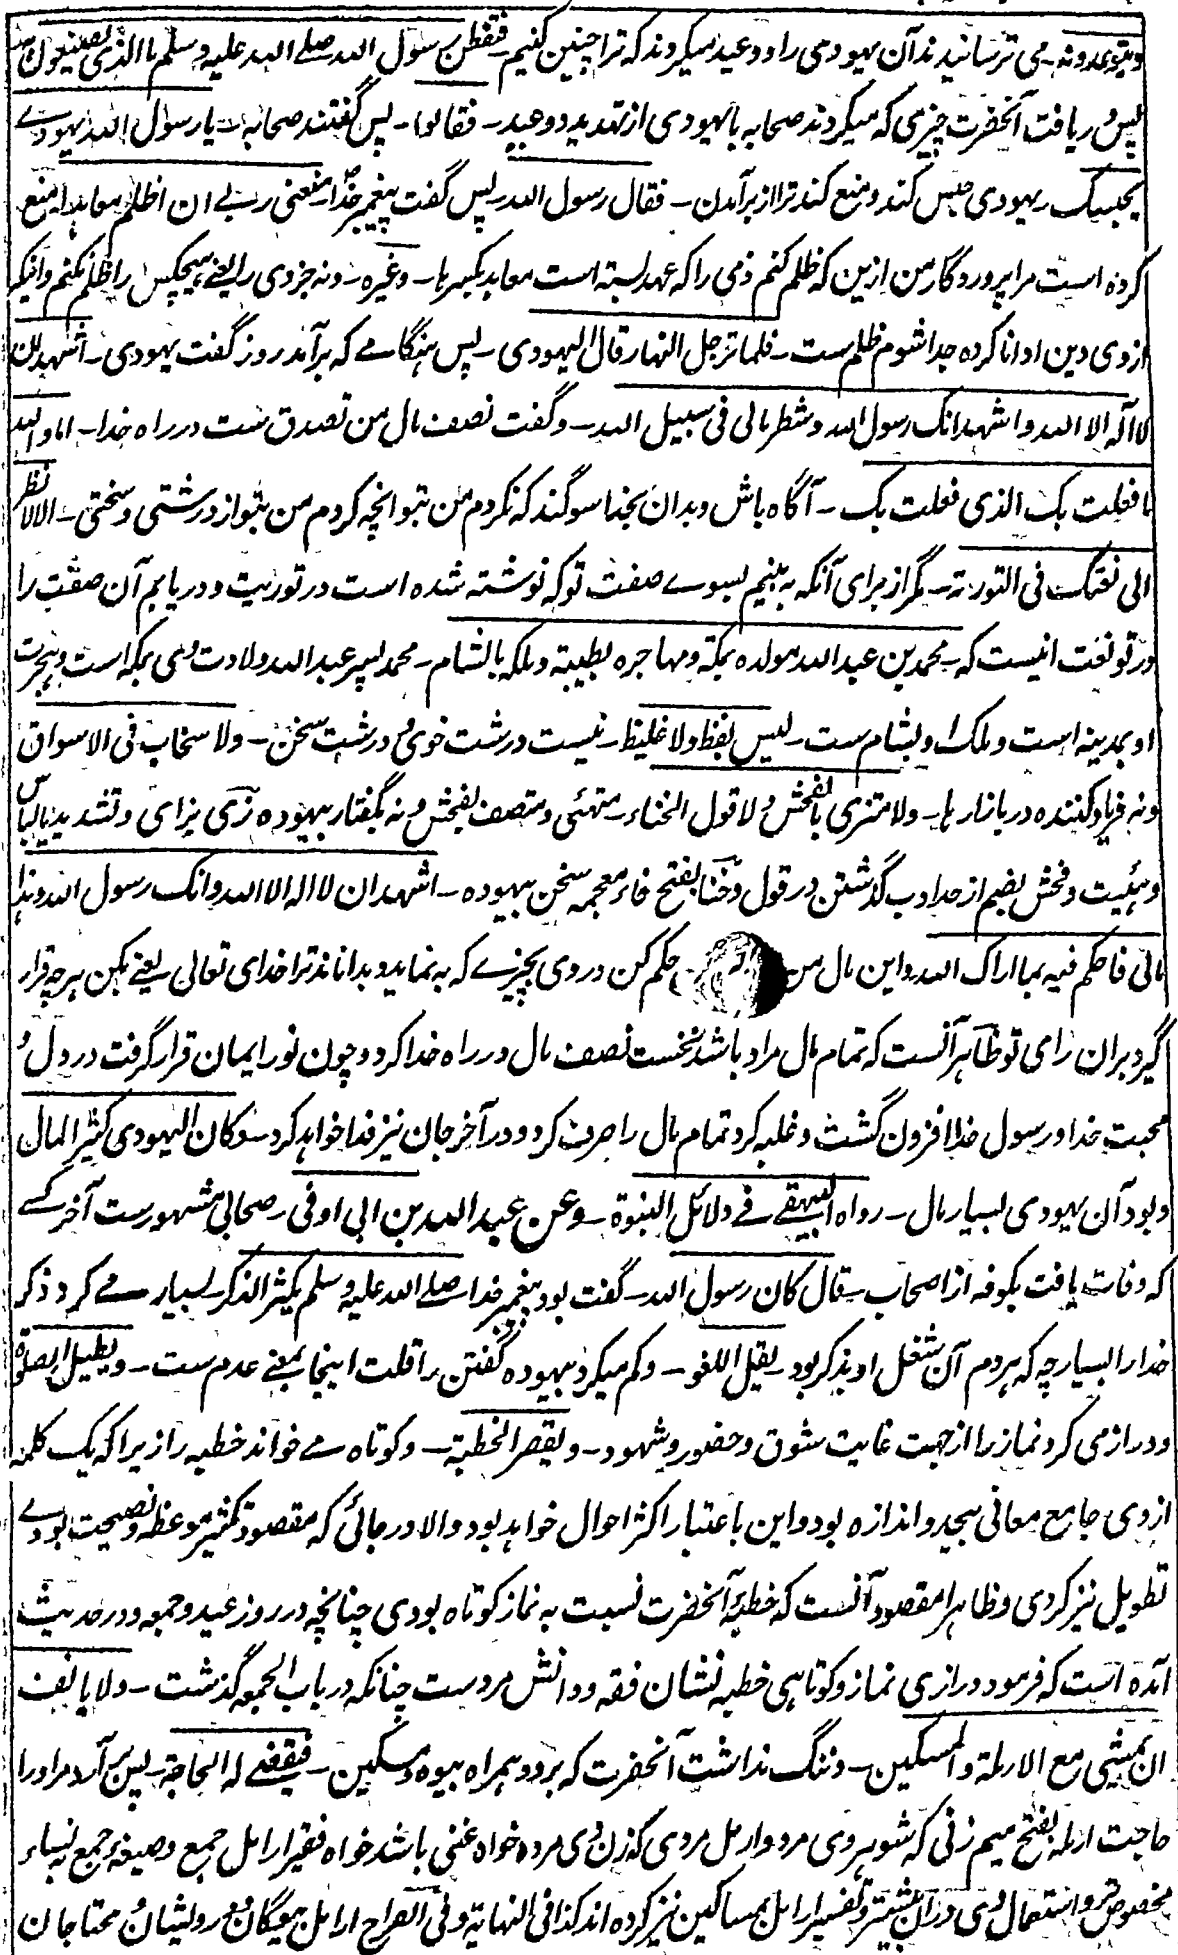 ویتوعدونه - می ترسانیدند آن یهودی را و وعید میکردند که ترا چنین کنیم - ففطن رسول الله صلے الله علیه وسلم ما الذی یصنعون به
پس دریافت آنحضرت چیزی که میکردند صحابه با یهودی از تهدید و وعید - فقالوا - پس گفتند صحابه - یا رسول الله یهودے
یحبسک - یهودی حبس کند و منع کند ترا از برآمدن - فقال رسول الله - پس گفت پیغمبر خدا - منعنی ربے ان اظلم معاهدا - منع
کرده است مرا پروردگار من ازین که ظلم کنم ذمی را که عهد بسته است معاهد بکسر ها - وغیره - ونه جز وی را یعنے هیچکس را ظلم نکنم و اینکه
ازوی دین او ادا نا کرده جدا شوم ظلم ست - فلما ترجل النهار قال الیهودی - پس هنگامے که برآمد روز گفت یهودی - اشهد ان
لا اله الا الله واشهد انک رسول الله وشطر مالی فی سبیل الله - وگفت نصف مال من تصدق ست در راه خدا - اما والله
ما فعلت بک الذی فعلت بک - آگاه باش و بدان بخدا سوگند که نکردم من بتو انچه کردم من بتو از درشتی و سختی - الا لانظر
الی نعتک فی التورىة - مگر از برای آنکه به بینم بسوے صفت تو که نوشته شده است در توریت و دریابم آن صفت را
در تو نعت اینست که - محمد بن عبد الله مولده بمکة ومهاجره بطیبة وملکه بالشام - محمد پسر عبد الله ولادت وی بمکه است و هجرت
او بمدینه است و ملک او بشام ست - لیس بفظ ولا غلیظ - نیست درشت خوی و درشت سخن - ولا سخاب فی الاسواق
ونه فریاد کننده در بازارها - ولا متزی بالفحش ولا قول الخناء - متهئی و متصف بفحش و نه بگفتار بیهوده زی بزای و تشدید یا لباس
و هئیت و فحش بضم از حد ادب گذشتن در قول و خنا بفتح خاء معجمه سخن بیهوده - اشهد ان لا اله الا الله وانک رسول الله وهذا
مالی فاحکم فیه بما اراک الله و این مال من حکم کن در وی بچیزے که بنماید و بداناند ترا خدای تعالی یعنے بکن هر چه قرار
گیرد بران رای تو ظاهر آنست که تمام مال مراد باشد نخست نصف مال در راه خدا کرد و چون نور ایمان قرار گرفت در دل و
محبت خدا و رسول خدا افزون گشت و غلبه کرد تمام مال را صرف کرد و در آخر جان نیز فدا خواهد کرد - وکان الیهودی کثیر المال
و بود آن یهودی بسیار مال - رواه البیهقے فے دلائل النبوة - وعن عبد الله بن ابی اوفی - صحابی مشهور ست آخر کسے
که وفات یافت بکوفه از اصحاب - قال کان رسول الله - گفت بود پیغمبر خدا صلے الله علیه وسلم یکثر الذکر - بسیار مے کرد ذکر
خدا را بسیار چه که هر دم آن شغل او بذکر بود - یقل اللغو - وکم میکرد بیهوده گفتن را قلت اینجا بمعنے عدم ست - ویطیل الصلوة
و دراز می کرد نماز را از جهت غایت شوق و حضور و شهود - ویقصر الخطبة - و کوتاه مے خواند خطبه را زیرا که یک کلمه
ازوی جامع معانی بیحد و اندازه بود و این باعتبار اکثر احوال خواهد بود والا در جائی که مقصود تکثیر موعظه و نصیحت بودے
تطویل نیز کردی و ظاهرا مقصود آنست که خطبهٔ آنحضرت نسبت به نماز کوتاه بودی چنانچه در روز عید و جمعه و در حدیث
آمده است که فرمود درازی نماز و کوتاهی خطبه نشان فقه و دانش مرد ست چنانکه در باب الجمعه گذشت - ولا یانف
ان یمشی مع الارملة والمسکین - و ننگ نداشت آنحضرت که برود همراه بیوه و مسکین - فیقضے له الحاجة - پس برآرد مر او را
حاجت ارمله بفتح میم زنی که شوهر وی مرد و ارمل مردی که زن وی مرده خواه غنی باشد خواه فقیر ارامل جمع و صیغهٔ جمع به نساء
مخصوص تر و استعمال وی دران بیشتر و تفسیر ارامل بمساکین نیز کرده اند کذا فی النهایة و فی الصراح ارامل بیوگان و درویشان و محتاجان